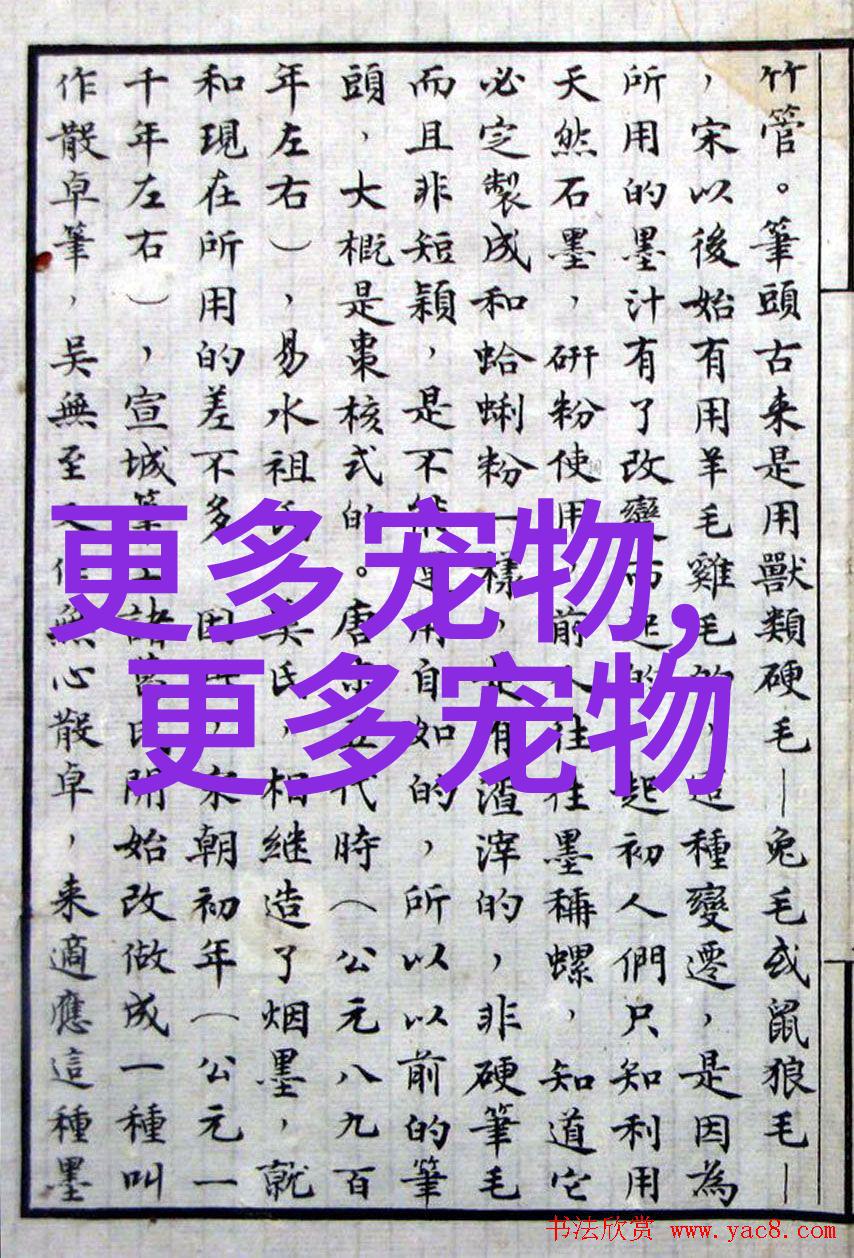 竹管。筆頭古来是用獸類硬毛—兔毛或鼠狼毛—
，宋以後始有用羊毛雞毛的，這種變遷，是因為
所用的墨汁有了改變而起的 起初人們只知利用
天然石墨，研粉使用，前人往往墨稱螺，知道它
必定製成和蛤蜊粉一樣，是有渣滓的，非硬筆毛
而且非短穎，是不能運用自如的，所以以前的筆
頭，大概是棗核式的。唐末五代時（公元八九百
年左右），易水祖氏 奚氏，相继造了烟墨，就
和現在所用的差不多 因 宋朝初年（公元一
千年左右），宣城筆工諸葛氏開始改做成一種叫
作散卓筆，吴無至又作無心散卓，来適應這種墨
更多宠物,
更多宠物
书法欣赏 www.yac8.com